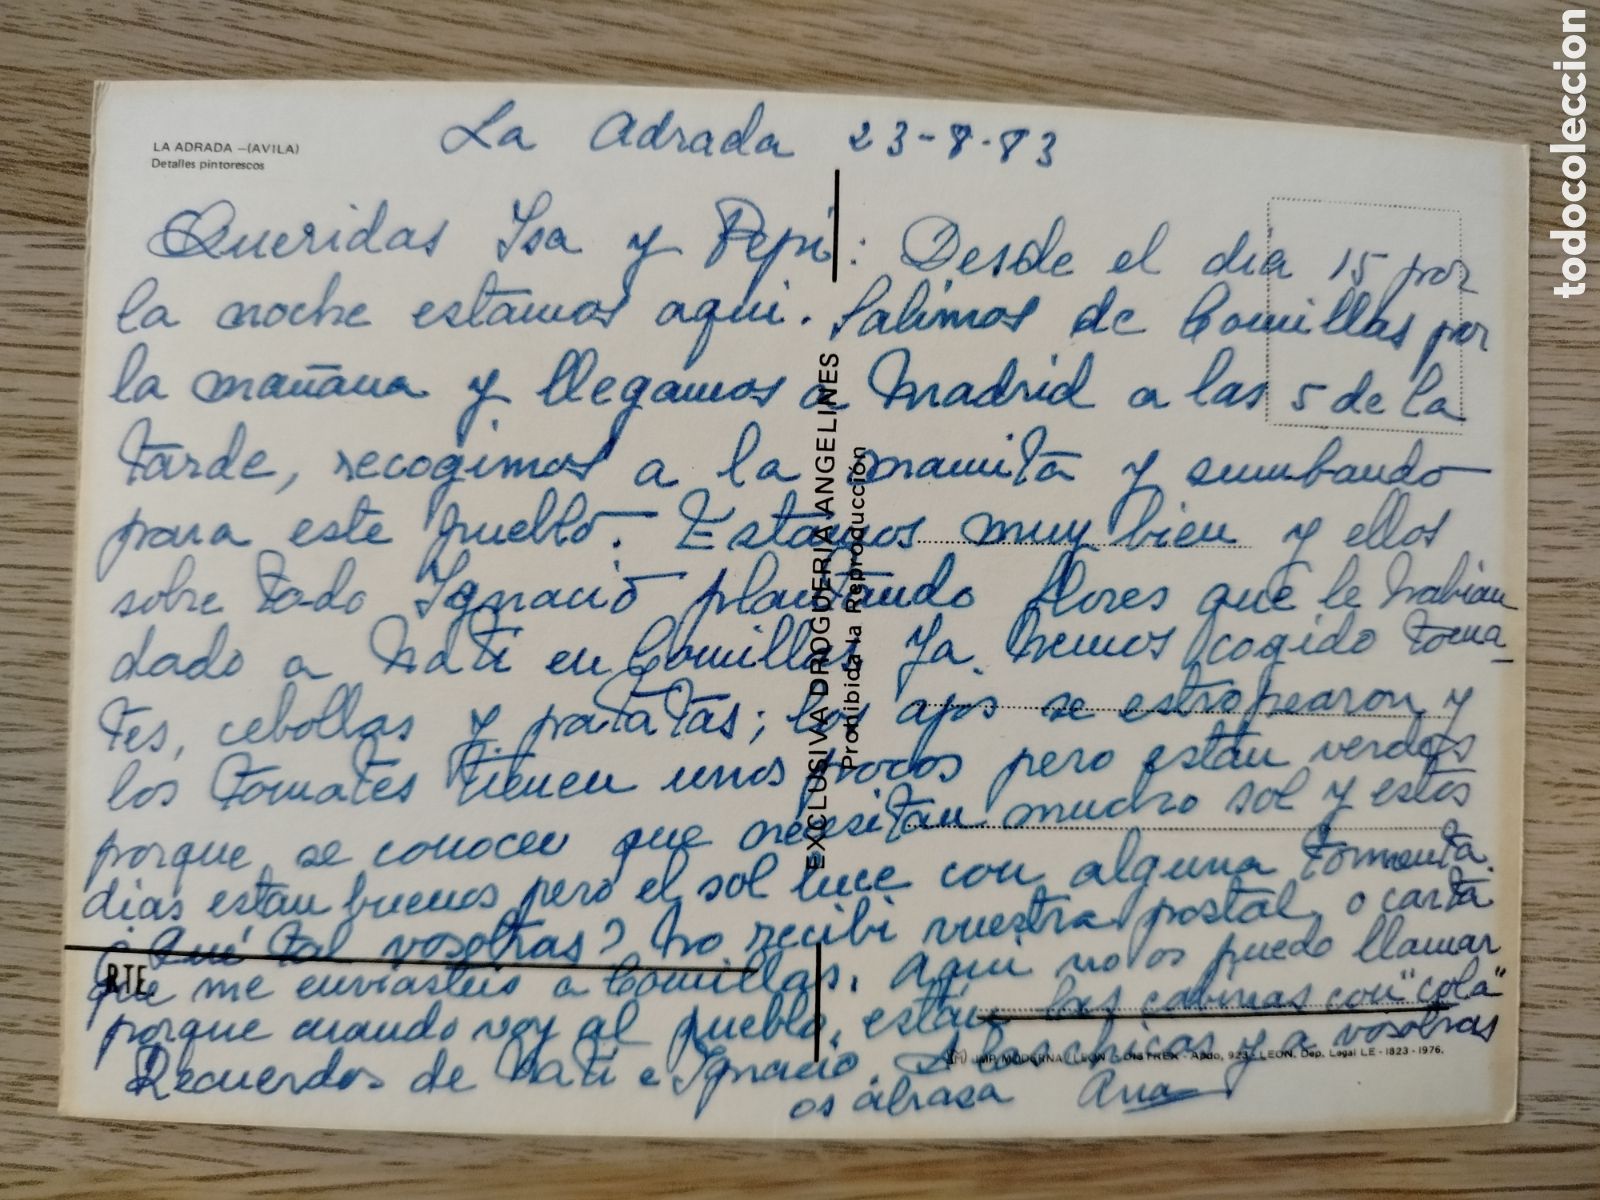 LA ADRADA -(AVILA)
Detalles pintorescos
La Adrada 23-8-83
Queridas Isa y Pepi: Desde el dia 15 por
la noche estamos aqui. Salimos de Comillas por
la mañana y llegamos a Madrid a las 5 de la
tarde, recogimos a la mamita y zumbando
para este pueblo. Estamos muy bien y ellos
sobre todo Ignacio plantando flores que le habian
dado a Nati en Comillas Ya hemos cogido toma-
tes, cebollas y patatas; los ajos se estropearon y
los tomates tienen unos pocos pero estan verdes
porque, se conocen que necesitan mucho sol y estos
dias estan buenos pero el sol luce con alguna tormenta.
¿Qué tal vosotras? No recibi vuestra postal o carta
que me enviasteis a Comillas. Aqui no os puedo llamar
porque cuando voy al pueblo, están las cabinas con "cola"
Recuerdos de Nati e Ignacio. A las chicas y a vosotras
os abraza Ana
EXCLUSIVA DROGUERIA ANGELINES
Prohibida la Reproducción
RTE.
IMP. MODERNA LEON - DISTREX - Apdo, 923 - LEON. Dep. Legal LE - 1823 - 1976.
todocoleccion